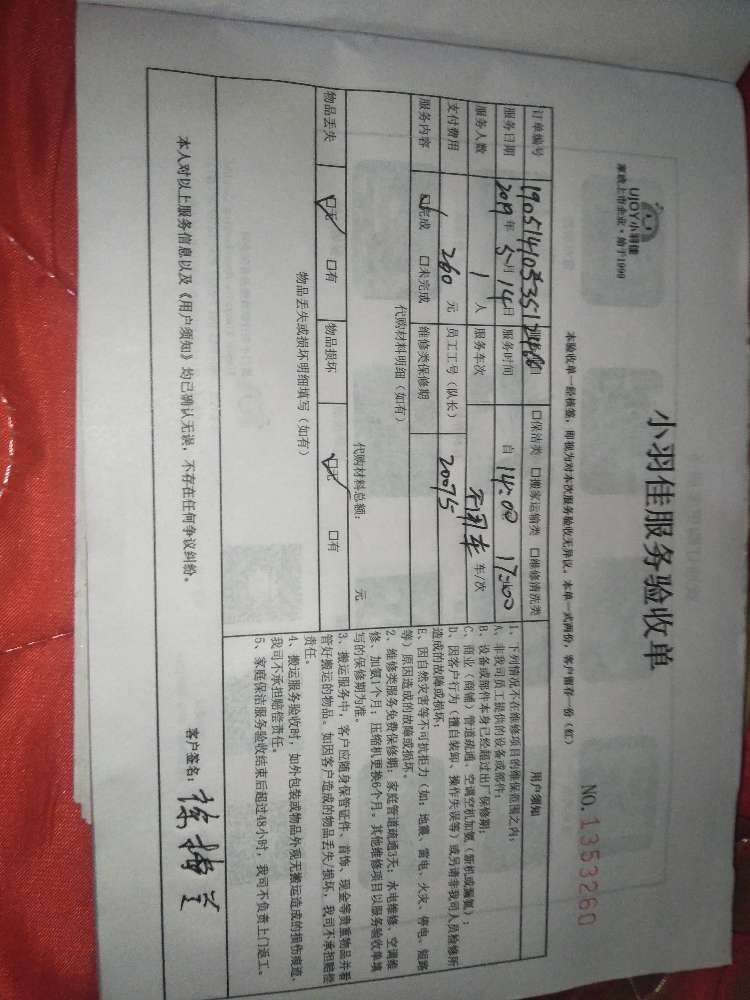 UJOY小羽佳
家政上市企业·始于1999
小羽佳服务验收单
NO. 1353260
本验收单一经核签，即视为对本次服务验收无异议。本单一式两份，客户留存一份（红）
订单编号 □保洁类 □搬家运输类 □维修清洗类
服务日期 2019年5月14日 服务时间 自 14:00 17:00
服务人数 1 人 服务车次 车/次
支付费用 260 元 员工工号（队长） 20075
服务内容 ☑完成 □未完成 维修类保修期
代购材料明细（如有）
代购材料总额： 元
物品丢失 ☑无 □有 物品损坏 ☑无 □有
物品丢失或损坏明细填写（如有）
用户须知
1、下列情况不在维修项目的维保范围之内：
A、非我司员工提供的设备或部件；
B、设备或部件本身已经超过出厂保修期；
C、商业（商铺）管道疏通、空调空机加氨（新机或漏氟）；
D、因客户行为（擅自装卸、操作失误等）或另请非我司人员检修所
造成的故障或损坏；
E、因自然灾害等不可抗拒力（如：地震、雷电、火灾、停电、短路
等）原因造成的故障或损坏。
2、维修类服务免费保修期：家庭管道疏通3天；水电维修、空调维
修、加氨1个月；压缩机更换6个月。其他维修项目以服务验收单填
写的保修期为准。
3、搬运服务中，客户应随身保管证件、首饰、现金等贵重物品并看
管好搬运的物品。如因客户造成的物品丢失/损坏，我司不承担赔偿
责任。
4、搬运服务验收时，如外包装或物品外观无搬运造成的损伤痕迹，
我司不承担赔偿责任。
5、家庭保洁服务验收结束后超过48小时，我司不负责上门返工。
本人对以上服务信息以及《用户须知》均已确认无误，不存在任何争议纠纷。
客户签名：